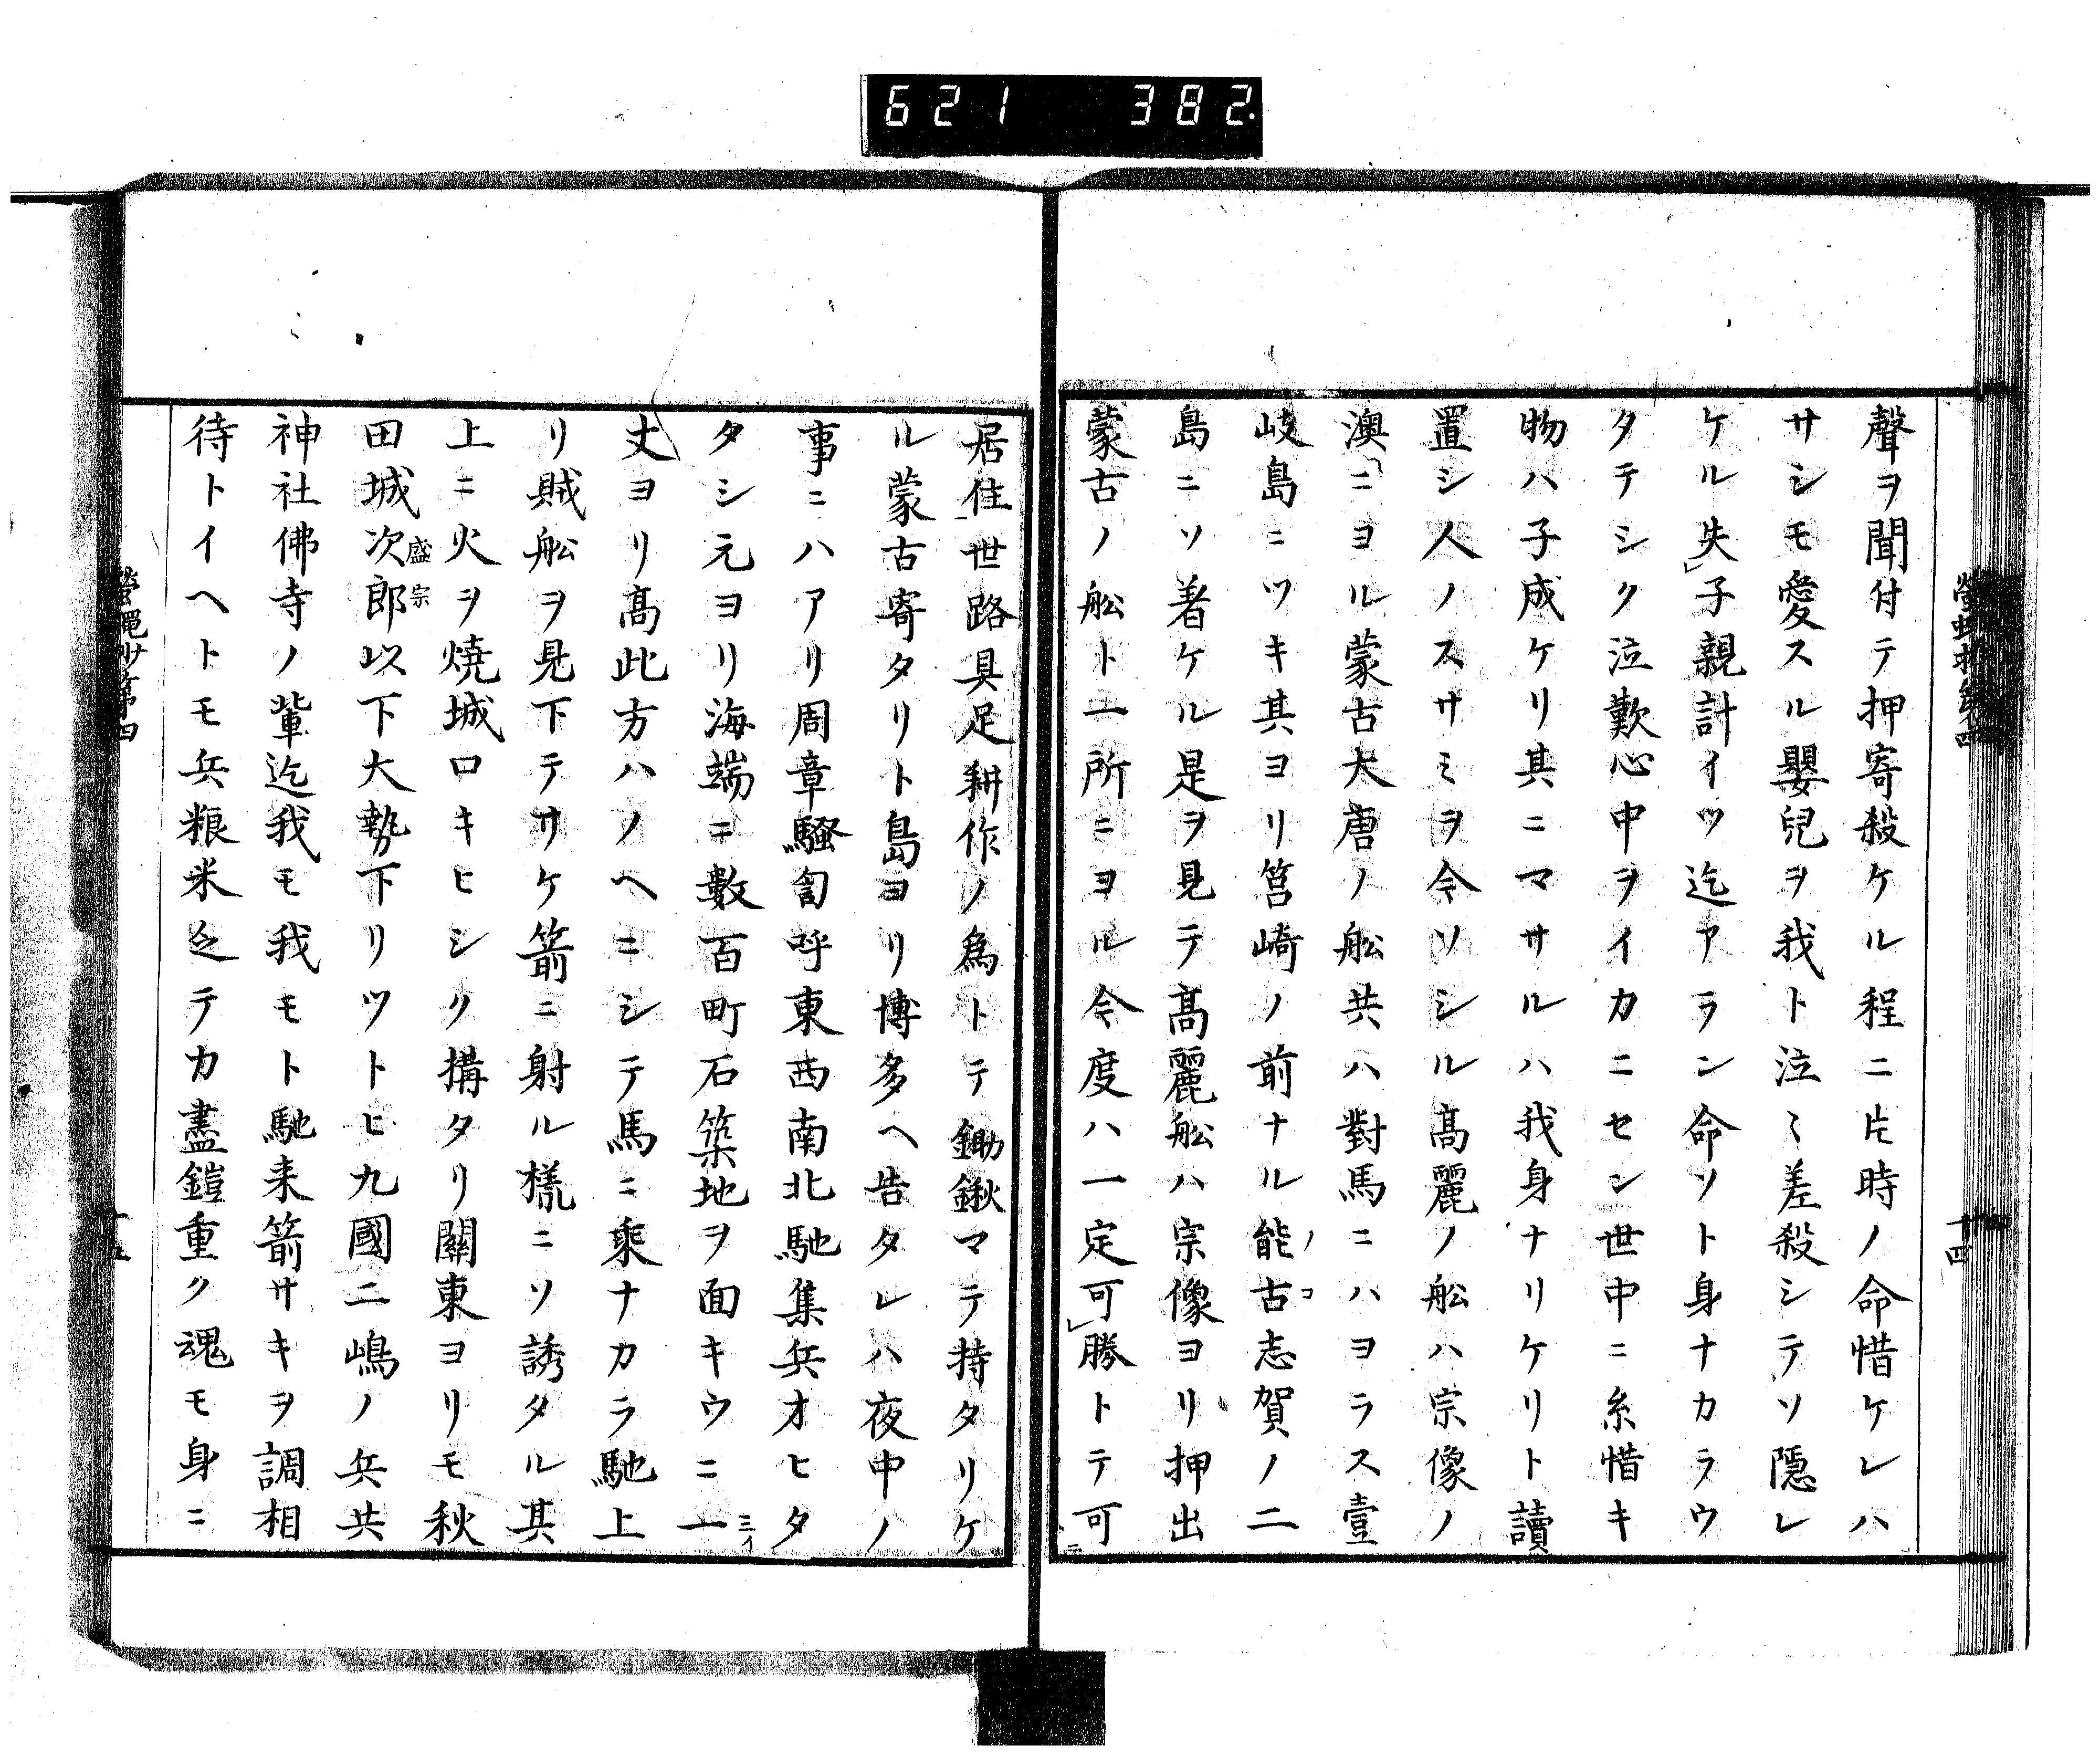 621 382.
聲ヲ聞付テ押寄殺ケル程ニ片時ノ命惜ケレハ
サシモ愛スル嬰兒ヲ我ト泣〻差殺シテソ隠レ
ケル失子親計イツ迄アラン命ソト身ナカラウ
タテシク泣歎心中ヲイカニセン世中ニ糸惜キ
物ハ子成ケリ其ニマサルハ我身ナリケリト讀
置シ人ノスサミヲ令ソシル髙麗ノ舩ハ宗像ノ
澳ニヨル蒙古大唐ノ舩共ハ對馬ニハヨラス壹
岐島ニツキ其ヨリ筥崎ノ前ナル能古志賀ノ二
ノコ
島ニソ着ケル是ヲ見テ髙麗舩ハ宗像ヨリ押出
蒙古ノ舩ト一所ニヨル今度ハ一定可勝トテ可
居住世路具足耕作ノ爲トテ鋤鍬マテ持タリケ
ル蒙古寄タリト島ヨリ博多ヘ告タレハ夜中ノ
事ニハアリ周章騒匐呼東西南北馳集兵オヒタ
タシ元ヨリ海端ニ數百町石築地ヲ面キウニ一
三イ
丈ヨリ髙此方ハノヘニシテ馬ニ乗ナカラ馳上
リ賊舩ヲ見下テサケ箭ニ射ル様ニソ誘タル其
上ニ火ヲ焼城ロキヒシク搆タリ關東ヨリモ秋
田城次郎以下大勢下リツトヒ九國二嶋ノ兵共
盛宗
神社佛寺ノ輩迄我モ我モト馳来箭サキヲ調相
待トイヘトモ兵粮米乏テカ盡鎧重ク魂モ身ニ
螢蠅抄第四
十五
十四